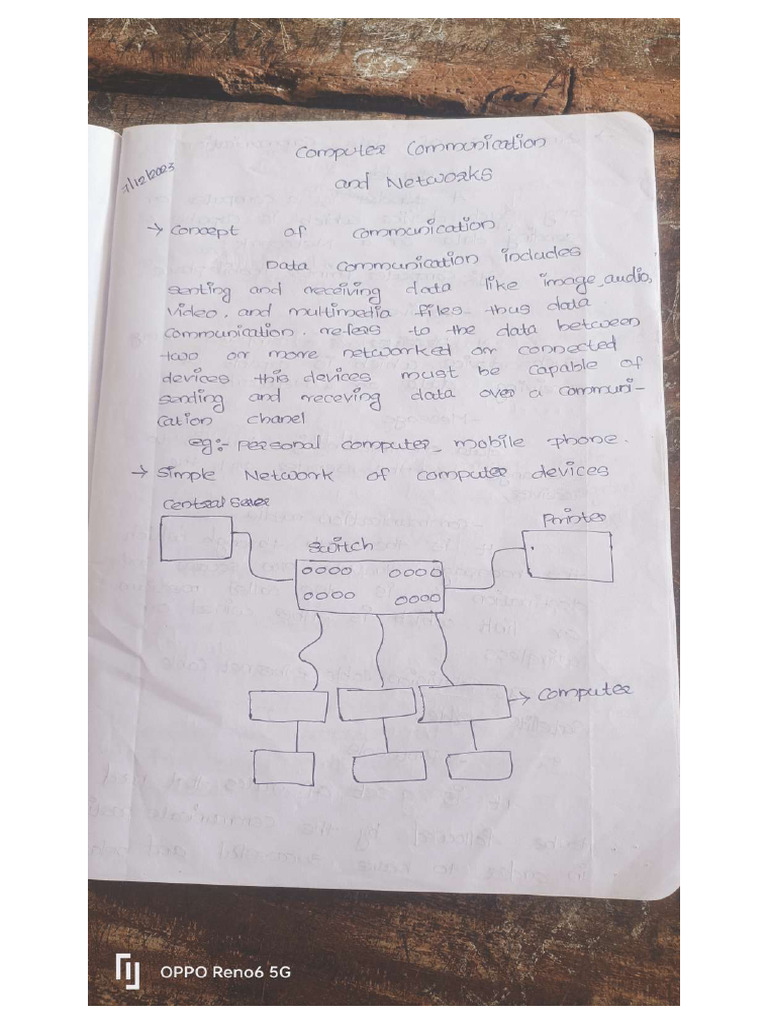 Computer Communication
and Networks
7/12/2023
→ Concept of Communication.
Data Communication includes
senting and receiving data like image, audio,
video, and multimedia files thus data
communication. refers to the data between
two or more networked or connected
devices this devices must be capable of
sending and receving data over a communi-
cation chanel
eg:- personal computer, mobile phone.
→ Simple Network of computer devices
Central Server
Printer
Switch
→ Computer
OPPO Reno6 5G